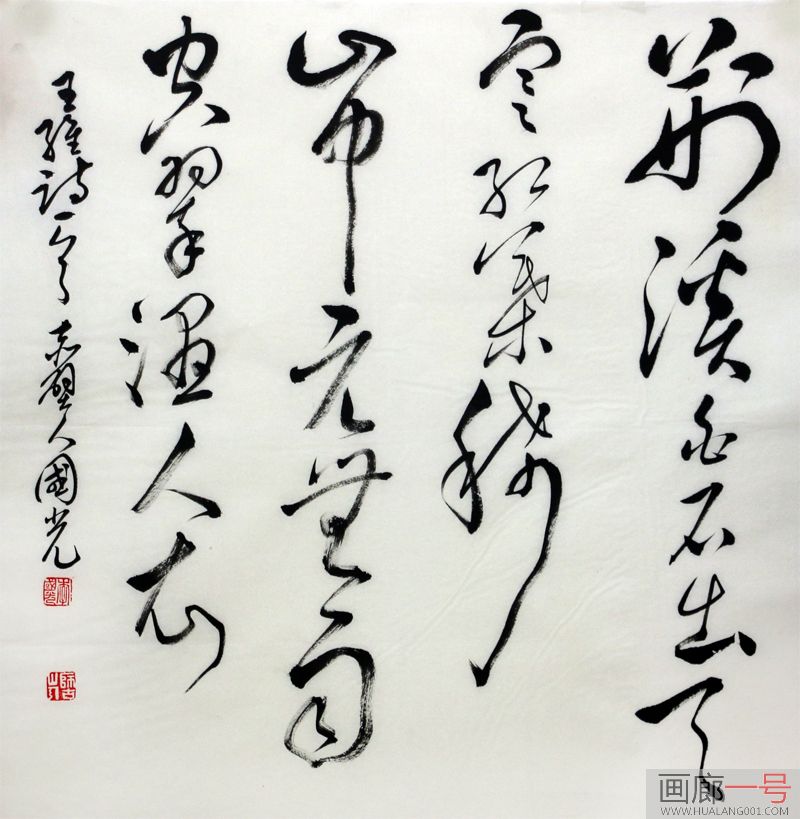 荆溪白石出天
寒紅葉稀
山路元無雨
空翠濕人衣
王維詩一首 赤壁人國光
画廊一号
WWW.HUALANG001.COM